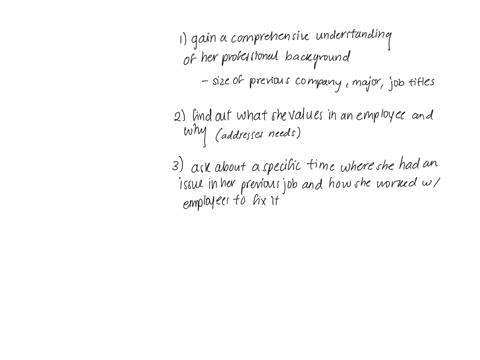 1) gain a comprehensive understanding
of her professional background
- size of previous company, major, job titles
2) find out what she values in an employee and
why (addresses needs)
3) ask about a specific time where she had an
issue in her previous job and how she worked w/
employees to fix it